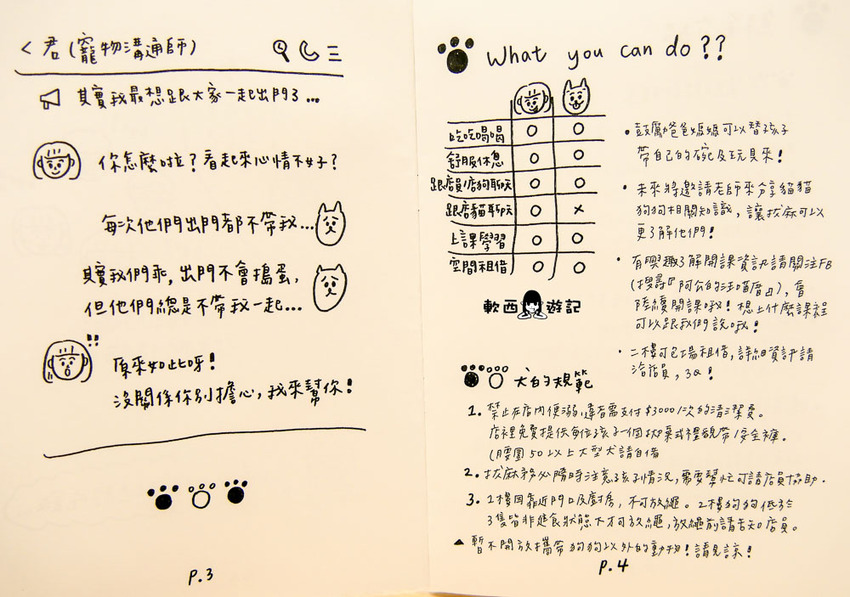 < 君(寵物溝通師)
其實我最想跟大家一起出門了...
你怎麼啦?看起來心情不好?
每次他們出門都不帶我...
其實我們乖,出門不會搗蛋,
但他們總是不帶我一起...
原來如此呀!
沒關係你別擔心,我來幫你!
P.3
What you can do??
吃吃喝喝 O O
舒服休息 O O
跟店員/店狗聊天 O O
跟店貓聊天 O ×
上課學習 O O
空間租借 O O
軟西 遊記
• 鼓勵爸爸媽媽可以替孩子
帶自己的碗及玩具來!
• 未來將邀請老師來分享貓貓
狗狗相關知識,讓拔麻可以
更了解他們!
• 有興趣了解開課資訊請關注FB
(搜尋『阿公的汪喵厝』),會
陸續開課哦!想上什麼課程
可以跟我們說哦!
• 二樓可包場租借,詳細資訊請
洽店員,3Q!
犬的規範
1. 禁止在店內便溺,違者需支付$3000/次的清潔費。
店裡免費提供每位孩子一個拋棄式禮貌帶/安全褲。
(腰圍50以上大型犬請自備
2. 拔麻務必隨時注意孩子情況,需要幫忙可請店員協助.
3. 1樓因靠近門口及廚房,不可放繩。2樓狗狗低於
3隻皆非進食狀態下才可放繩,放繩前請告知店員。
▲ 暫不開放攜帶狗狗以外的動物!請見諒!
P.4